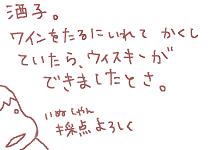 酒子。
ワインをたるにいれて かくし
ていたら、ウィスキーが
できましたとさ。
いぬしゃん
採点よろしく